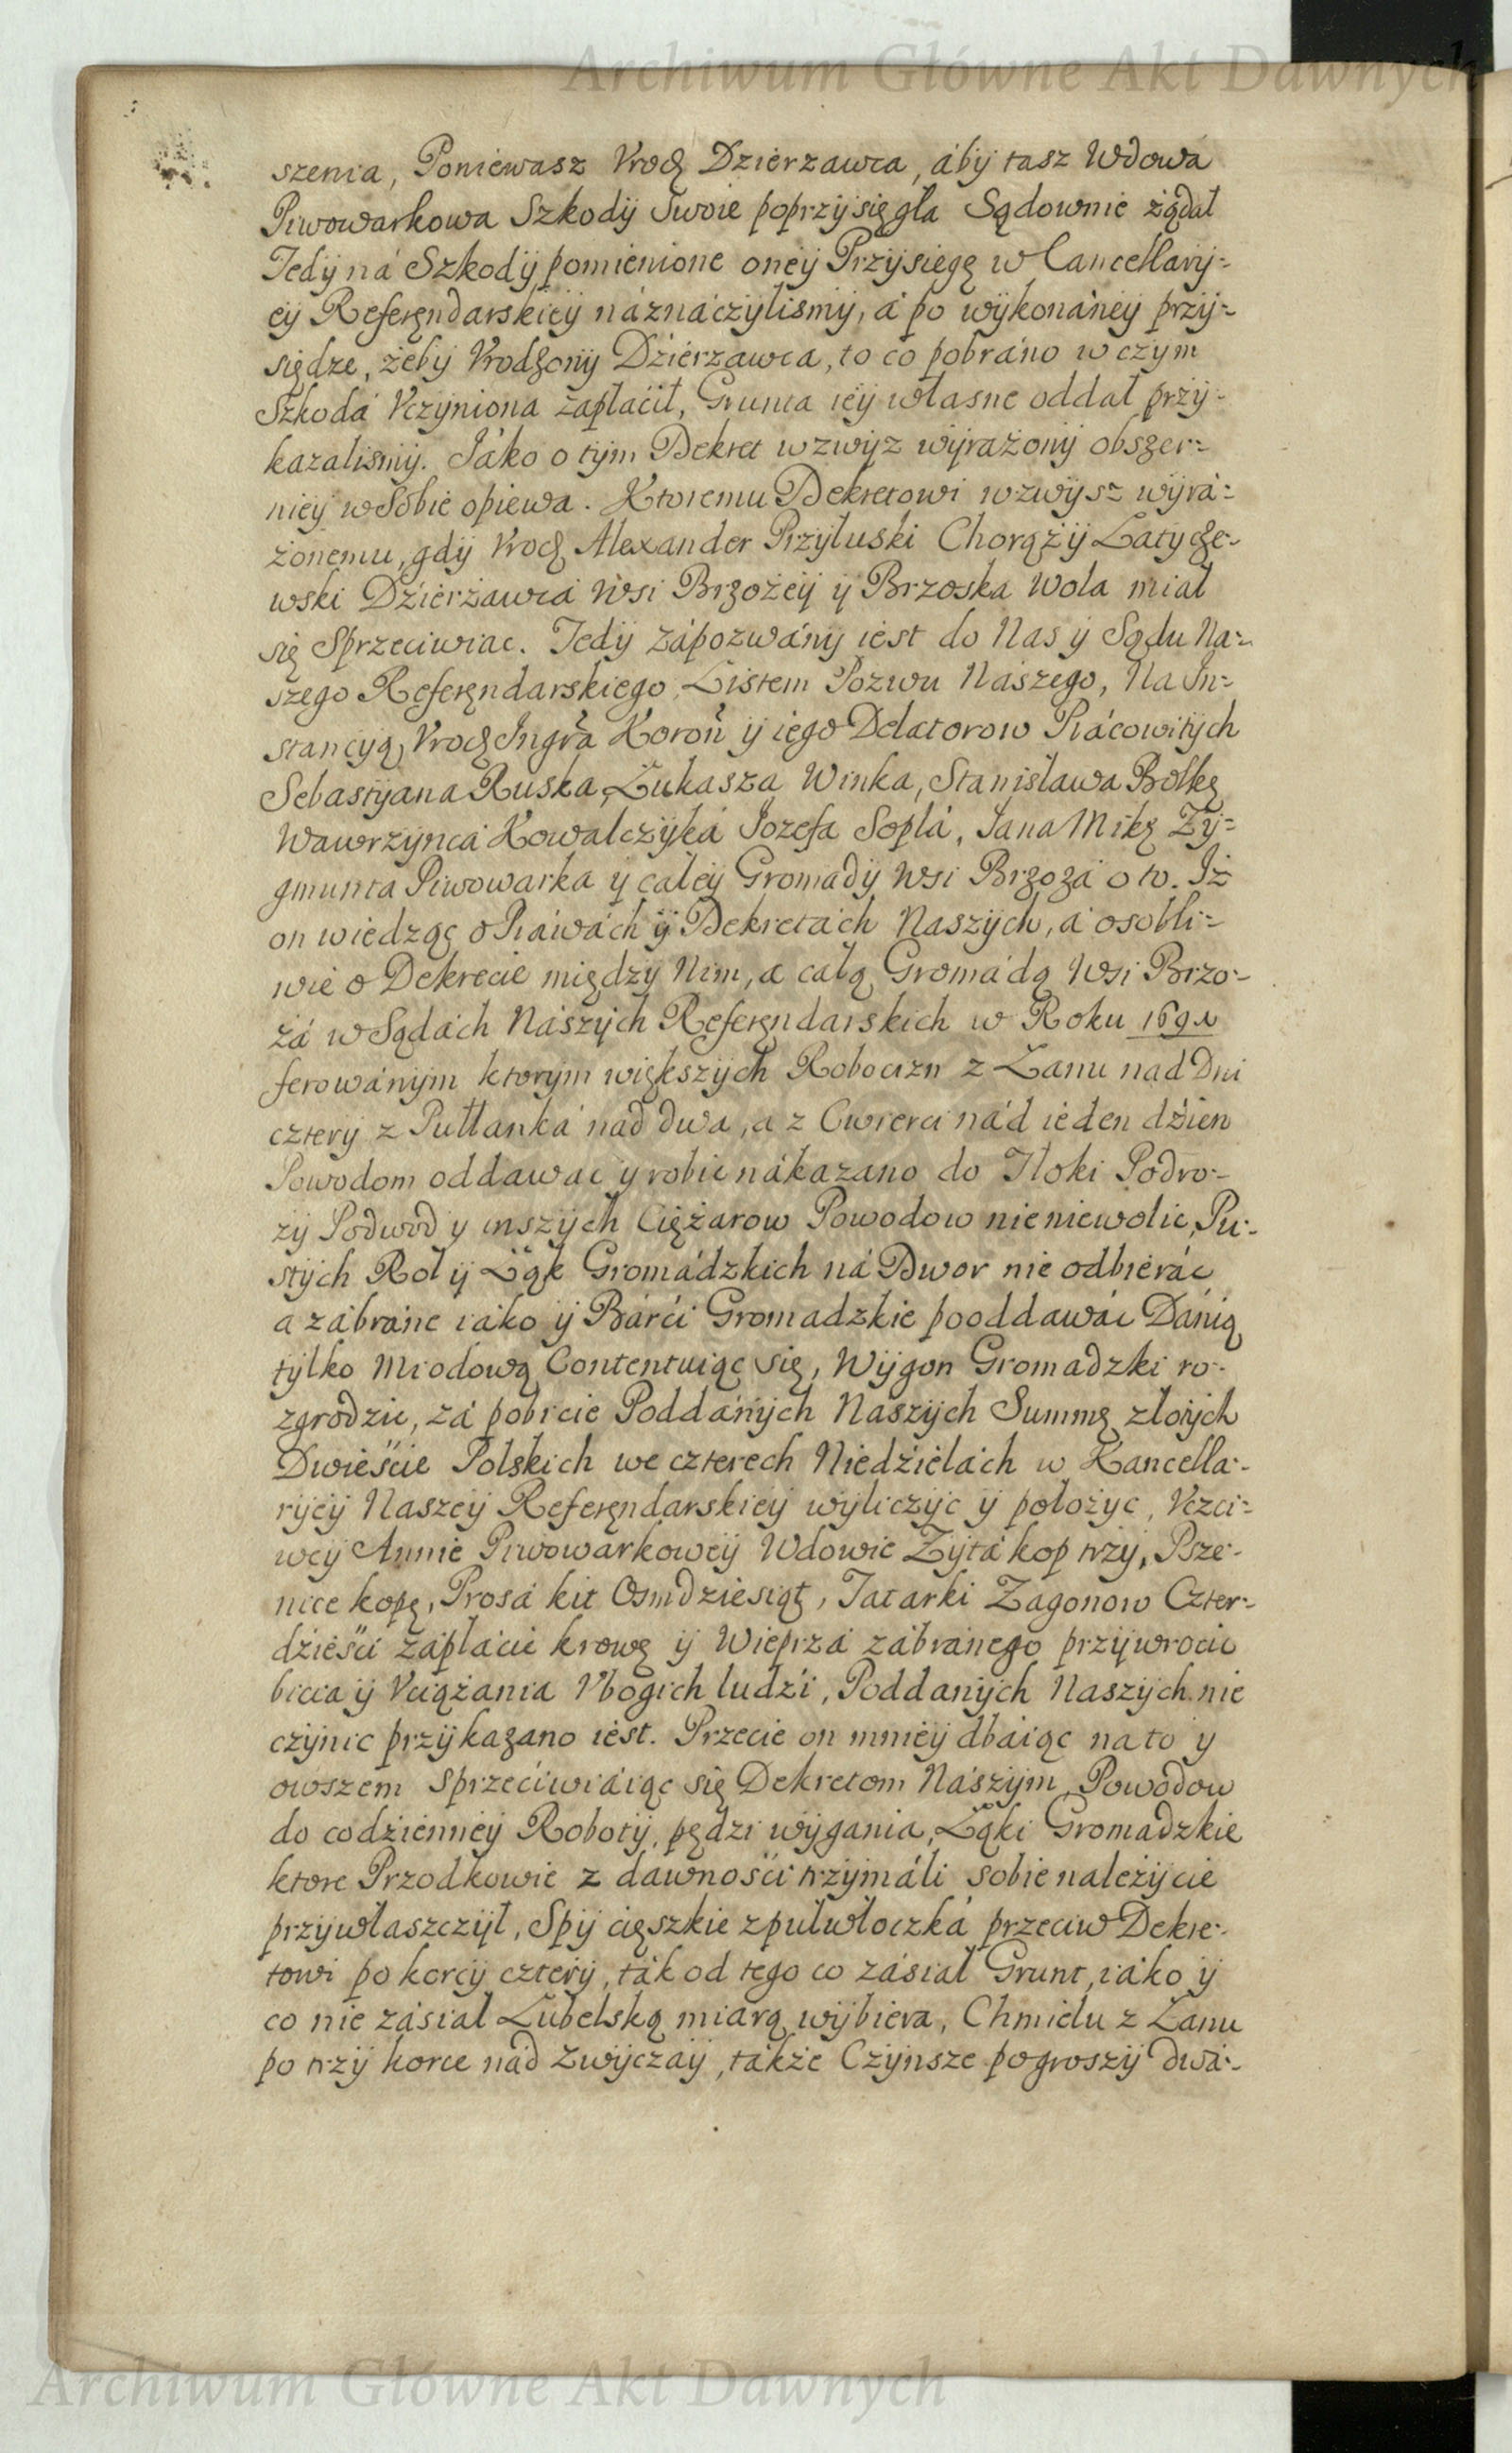 Archiwum Główne Akt Dawnych
szenia, Poniewasz Vrodz Dzierzawca, áby tasz Wdowá
Piwowarkowa Szkody Swoie poprzysięgła Sądownie żądał
Tedy ná Szkody pomienione oney Przysięgę w Cancellary=
ey Referęndarskiey náznáczylismy, á po wykonáney przy=
siędze, żeby Vrodzony Dzierzawca, to co pobráno w czym
Szkodá Vczyniona zapłacił, Grunta iey własne oddał przy=
kazalismy. Jáko o tym Dekret wzwyz wyrażony obszer=
niey w Sobie opiewa. Ktoremu Dekretowi wzwysz wyrá=
żonemu, gdy Vrodz Alexander Przyłuski Chorąży Latycze=
wski Dzierżawcá Wsi Brzożey y Brzoska Wola miał
się Sprzeciwiac. Tedy zápozwány iest do Nas y Sądu Na=
szego Referęndarskiego, Listem Pozwu Naszego, Na In=
stancyą Vrodz Ingra Koron y iego Delatorow Prácowitych
Sebastyana Ruska, Łukasza Winka, Stanisława Bolkę
Wawrzyncá Kowalczyká Jozefa Soplá, Jana Mikę Zy=
gmunta Piwowarka y całey Gromady Wsi Brzozá o to. Iż
on wiedząc o Práwách y Dekretách Naszych, á osobli=
wie o Dekrecie między Nim, a całą Gromádą Wsi Brzo=
zá w Sądách Nászych Referęndarskich w Roku 1691
ferowánym ktorym większych Robocizn z Łanu nad Dni
cztery z Pułłanká nad dwa, a z Cwierci nád ieden dzien
Powodom oddawac y robic nákazano do Tłoki Podro=
zy Podwod y inszych Ciężarow Powodow nie niewolic, Pu=
stych Rol y Łąk Gromádzkich ná Dwor nie odbieráć
a zábrane iáko y Bárći Gromadzkie pooddawác Dánią
tylko Miodową Contentuiąc się, Wygon Gromadzki ro=
zgrodzic, zá pobicie Poddánych Naszych Summę złotych
Dwieście Polskich we czterech Niedzielách w Kancella=
ryey Naszey Referęndarskiey wyliczyc y położyc, Vczci=
wey Annie Piwowarkowey Wdowie Żytá kop trzy, Psze=
nice kopę, Prosá kit Osmdziesiąt, Tatarki Zagonow Czter=
dzieści zápłacic krowę y Wieprzá zábránego przywrocic
bicia y Vciążania Vbogich ludzi, Poddanych Naszych nie
czynic przykazano iest. Przecie on mniey dbáiąc na to y
owszem sprzeciwiáiąc się Dekretom Nászym, Powodow
do codzienney Roboty, pędzi wygania, Łąki Gromadzkie
ktore Przodkowie z dawności trzymáli sobie należycie
przywłaszczył, Spy cięszkie z pułwłoczká przeciw Dekre=
towi po korcy cztery, ták od tego co zásiał Grunt, iáko y
co nie zásiał Lubelską miarą wybiera, Chmielu z Łanu
po trzy korce nád zwyczay, tákże Czynsze po groszy dwá=
Archiwum Główne Akt Dawnych